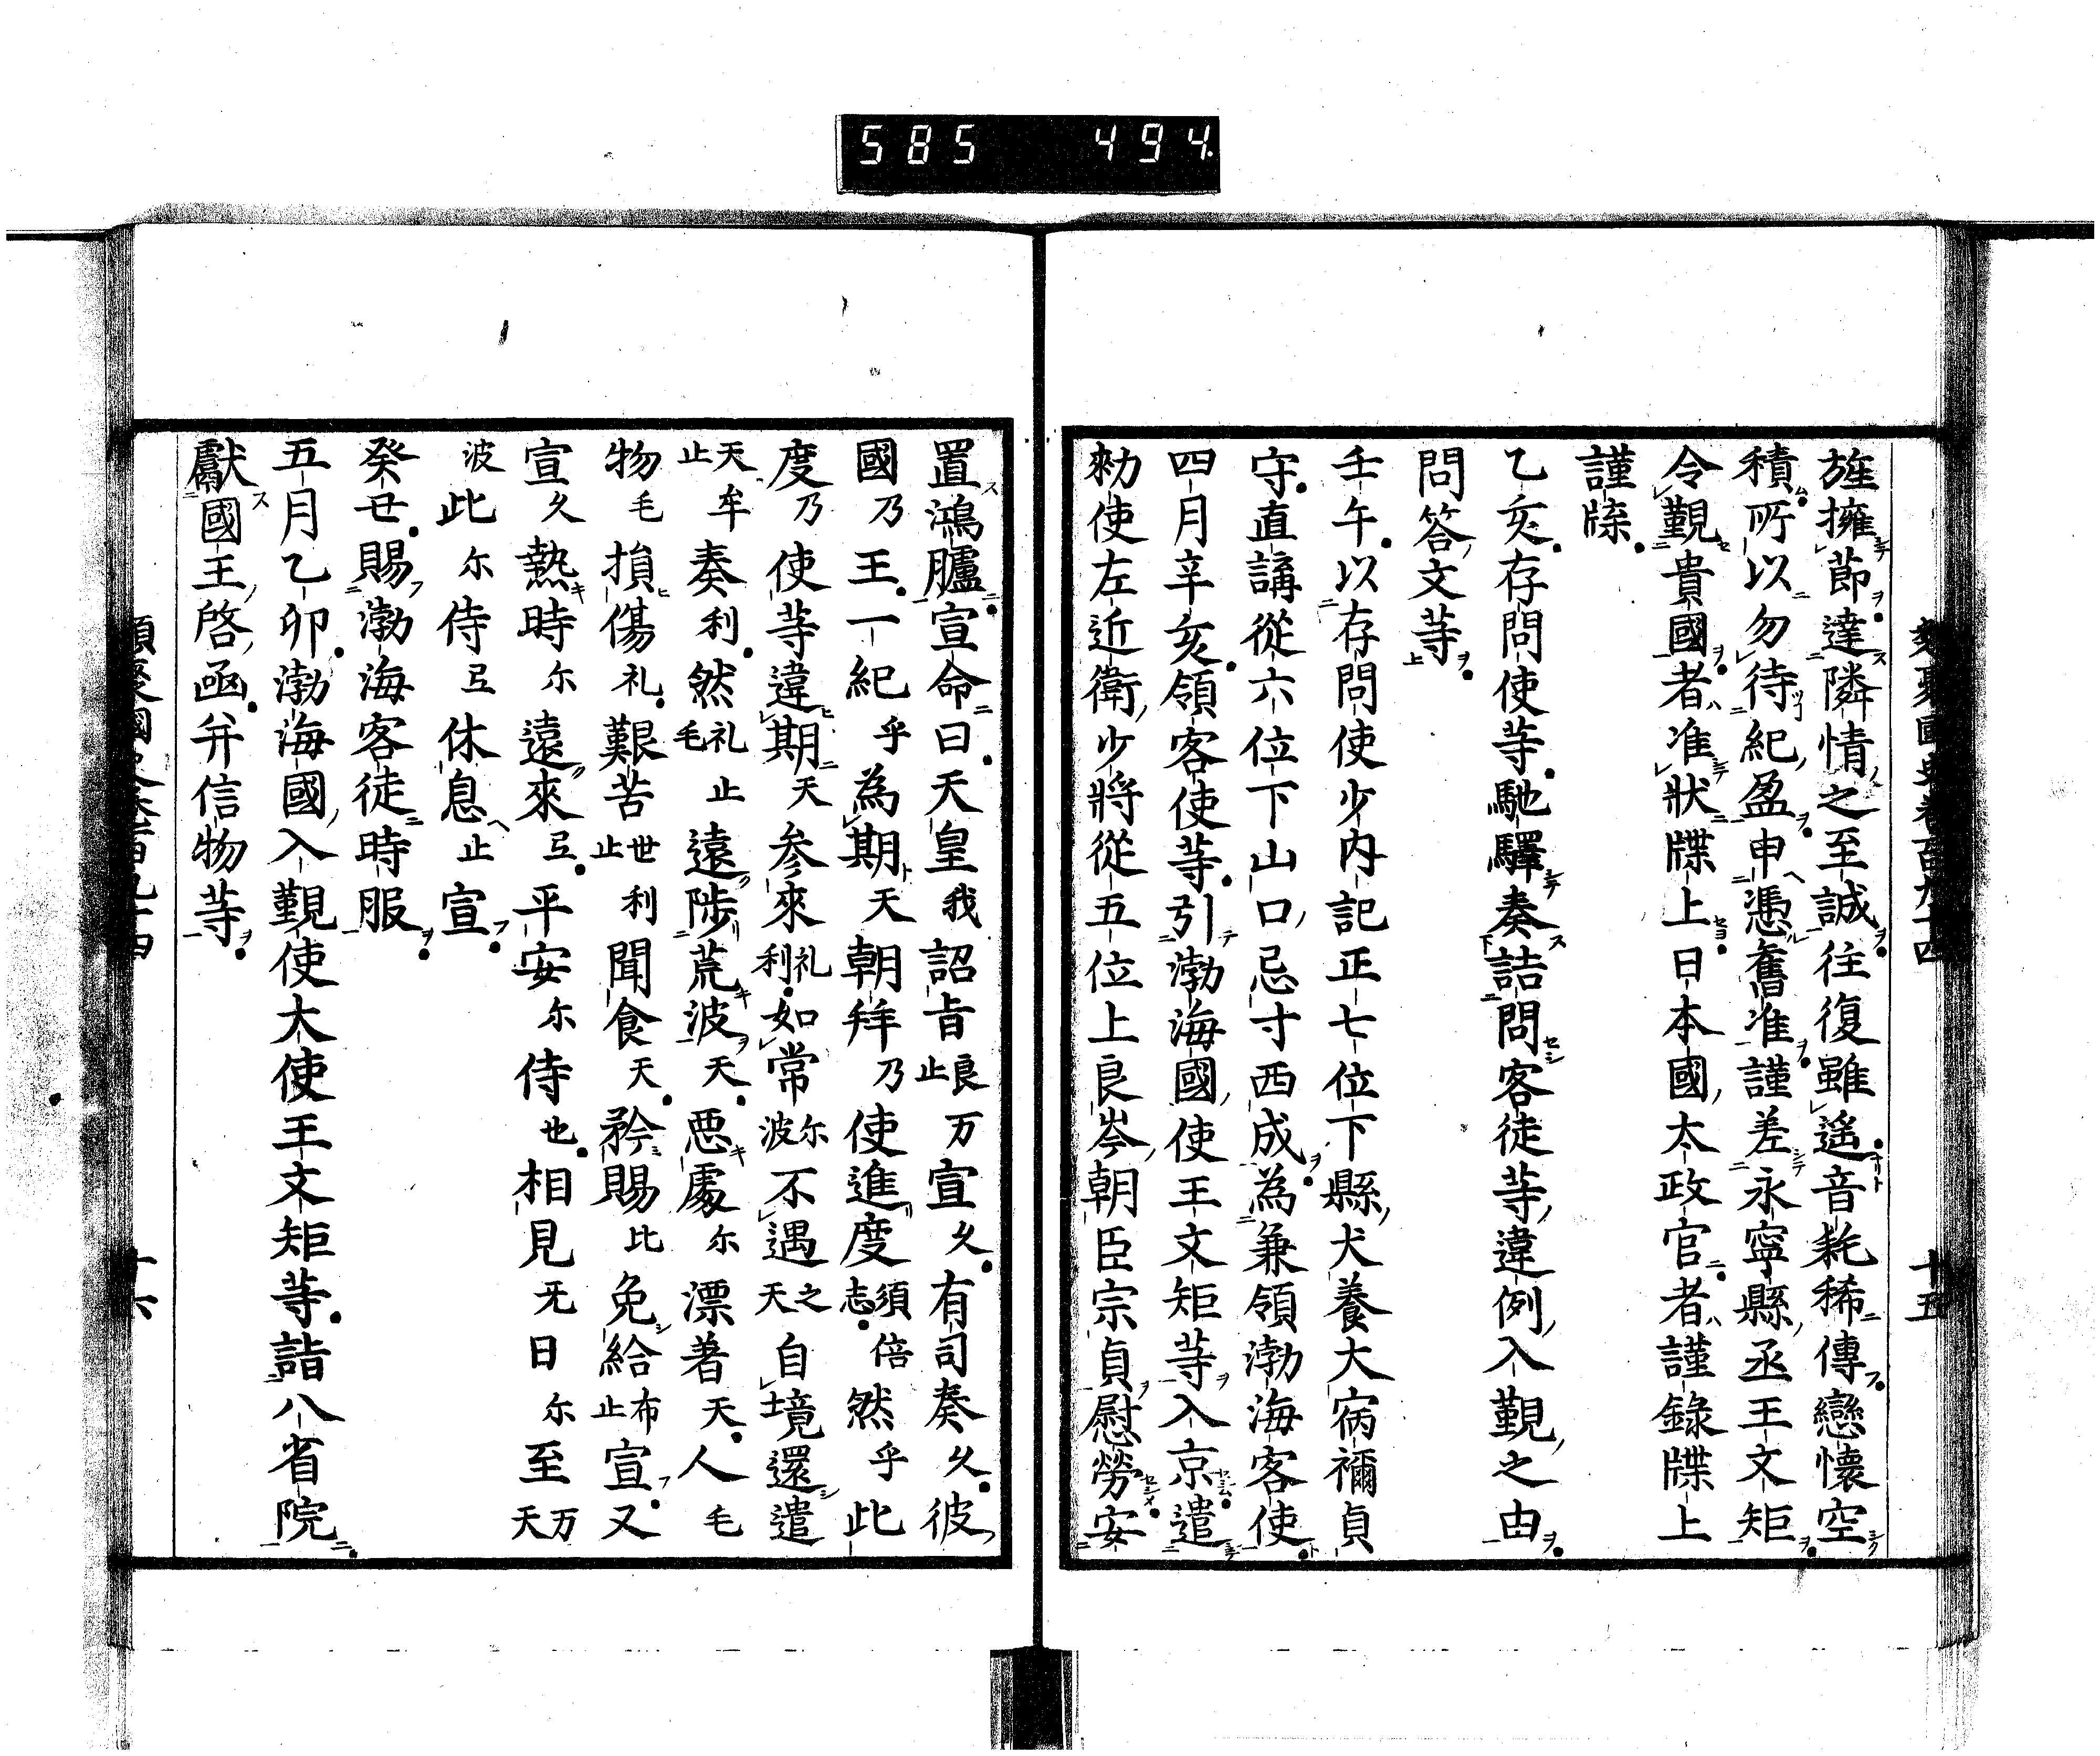 585 494
類聚國史卷百九十四 十五
旌擁節達隣情之至誠往復雖遥音耗稀傳戀懷空
積所以勿待紀盈申憑舊准謹差永寧縣丞王文矩
令覲貴國者准狀牒上日本國太政官者謹錄牒上
謹牒
乙亥存問使等馳驛奏詰問客徒等違例入覲之由
問答文等
壬午以存問使少内記正七位下縣犬養大宿禰貞
守直講從六位下山口忌寸西成為兼領渤海客使
四月辛亥領客使等引渤海國使王文矩等入京遣
勑使左近衛少將從五位上良岑朝臣宗貞慰勞安
置鴻臚宣命曰天皇我詔旨良止万宣久有司奏久彼
國乃王一紀乎為期天朝拜乃使進度須志倍然乎此
度乃使等違期天参來礼利如常尓波不遇之天自境還遣
天止牟奏利然礼毛止遠陟荒波天悪處尓漂著天人毛
物毛損傷礼艱苦世止利聞食天矜賜比免給布止宣又
宣久熱時尓遠來弖平安尓侍也相見旡日尓至万天
波此尓侍弖休息止宣
癸丑賜渤海客徒時服
五月乙卯渤海國入覲使大使王文矩等詣八省院
獻國王啓函并信物等
類聚國史卷百九十四 十六